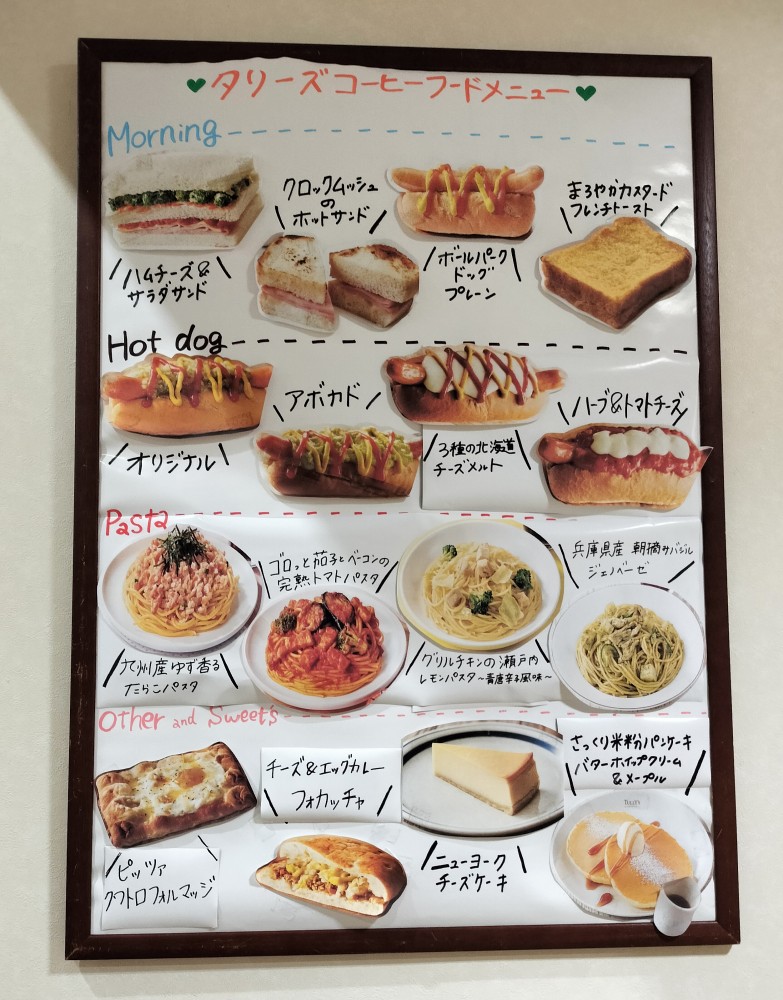 ♥タリーズコーヒーフードメニュー♥
Morning
ハムチーズ&
サラダサンド
クロックムッシュ
の
ホットサンド
ボールパーク
ドッグ
プレーン
まろやかカスタード
フレンチトースト
Hot dog
オリジナル
アボカド
3種の北海道
チーズメルト
ハーブ&トマトチーズ
Pasta
九州産ゆず香る
たらこパスタ
ゴロっと茄子とベーコンの
完熟トマトパスタ
グリルチキンの瀬戸内
レモンパスタ~青唐辛子風味~
兵庫県産 朝摘みバジル
ジェノベーゼ
Other and Sweet's
ピッツァ
クワトロフォルマッジ
チーズ&エッグカレー
フォカッチャ
ニューヨーク
チーズケーキ
さっくり米粉パンケーキ
バターホイップクリーム
&メープル